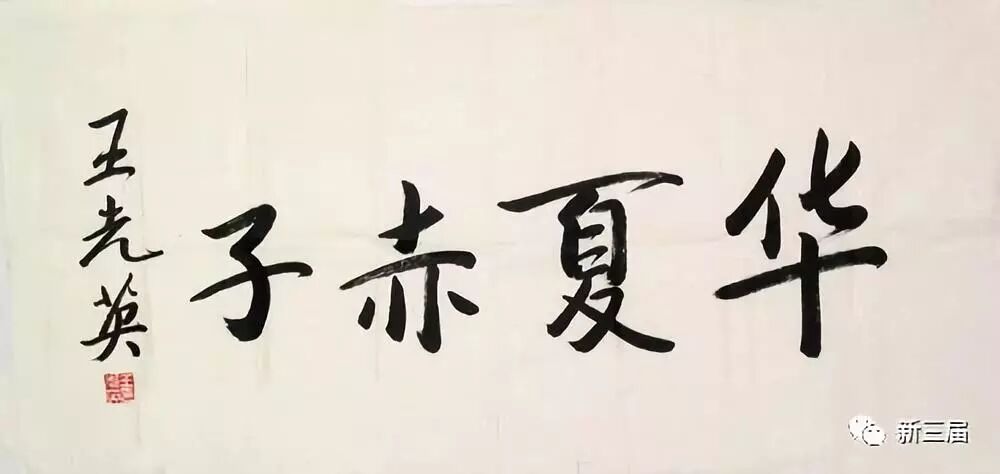 华夏赤子
王光英
新三届